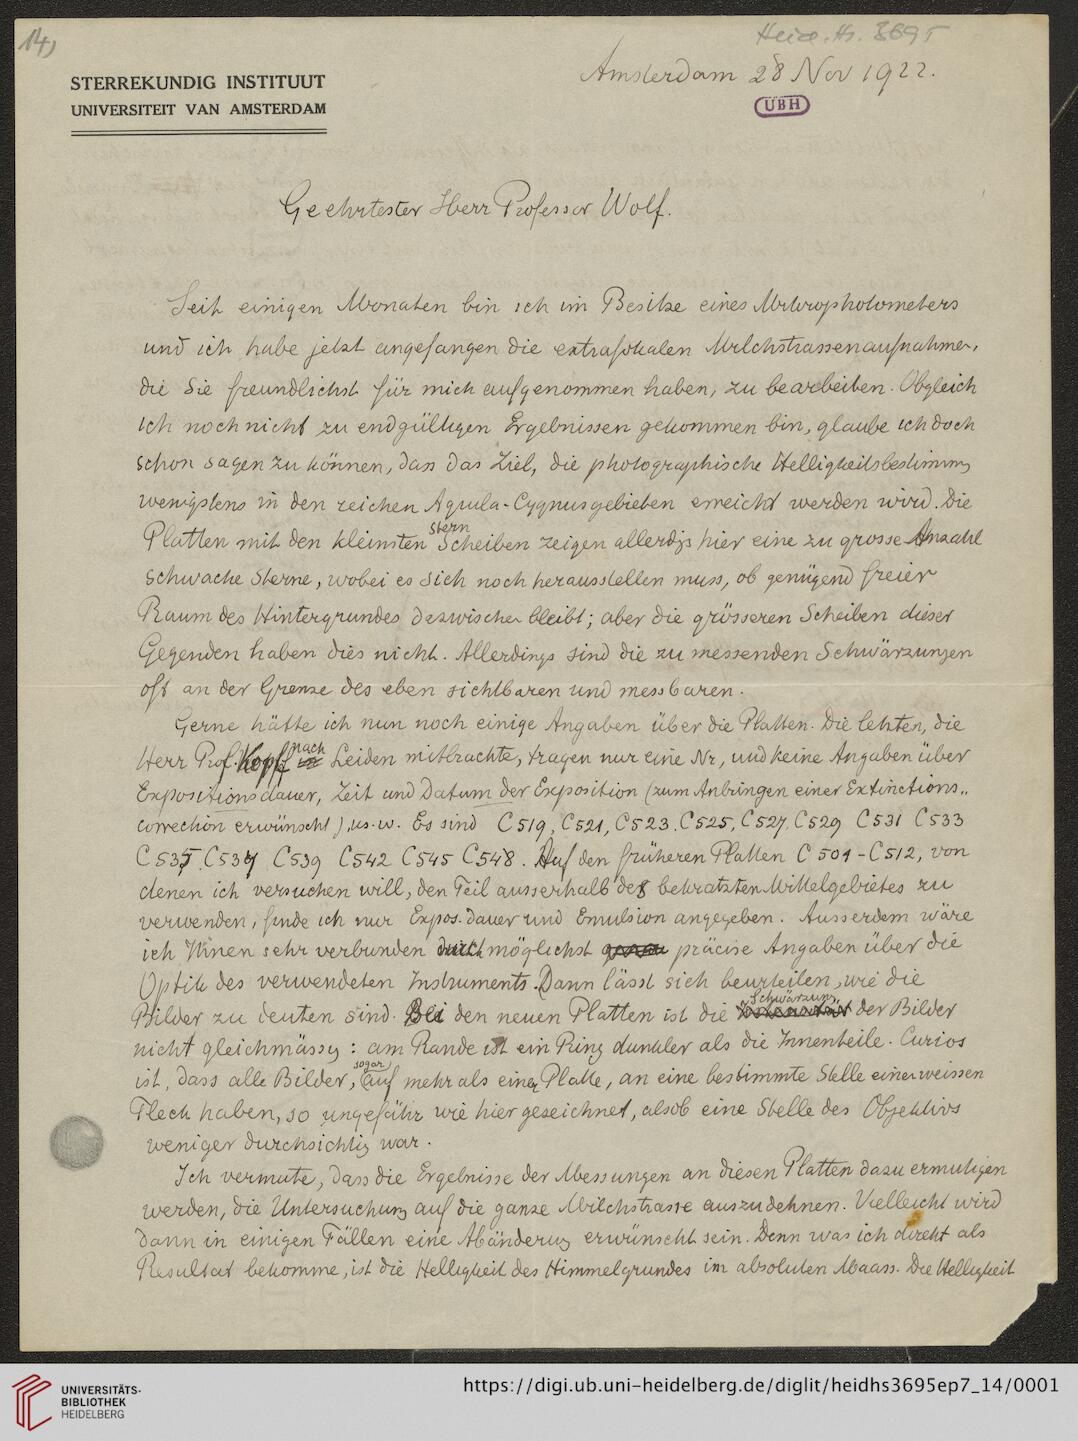 14)
Heid. Hs. 3695
STERREKUNDIG INSTITUUT
UNIVERSITEIT VAN AMSTERDAM
Amsterdam 28 Nov 1922.
UBH
Geehrtester Herr Professor Wolf.
Seit einigen Monaten bin ich im Besitze eines Mikrophotometers
und ich habe jetzt angefangen die extrafokalen Milchstrassenaufnahmen,
die Sie freundlichst für mich aufgenommen haben, zu bearbeiten. Obgleich
ich noch nicht zu endgültigen Ergebnissen gekommen bin, glaube ich doch
schon sagen zu können, dass das Ziel, die photographische Helligkeitsbestimmung
wenigstens in den reichen Aquila-Cygnusgebieten erreicht werden wird. Die
Platten mit den kleinsten Stern Scheiben zeigen allerdgs hier eine zu grosse Anzahl
schwache Sterne, wobei es sich noch herausstellen muss, ob genügend freier
Raum des Hintergrundes dazwischen bleibt; aber die grösseren Scheiben dieser
Gegenden haben dies nicht. Allerdings sind die zu messenden Schwärzungen
oft an der Grenze des eben sichtbaren und messbaren.
Gerne hätte ich nun noch einige Angaben über die Platten. Die letzten, die
Herr Prof. Kopff nach Leiden mitbrachte, tragen nur eine Nr, und keine Angaben über
Expositionsdauer, Zeit und Datum der Exposition (zum Anbringen einer Extinctions„
correction erwünscht), us.w. Es sind C519, C521, C523, C525, C527, C529 C531 C533
C535. C537 C539 C542 C545 C548. Auf den früheren Platten C 501-C512, von
denen ich versuchen will, den Teil ausserhalb des bekratzten Mittelgebietes zu
verwenden, finde ich nur Expos. dauer und Emulsion angegeben. Ausserdem wäre
ich Ihnen sehr verbunden durch möglichst präcise Angaben über die
Optik des verwendeten Instruments. Dann lässt sich beurteilen, wie die
Bilder zu deuten sind. Bei den neuen Platten ist die Schwärzung der Bilder
nicht gleichmässig: am Rande ist ein Ring dunkler als die Innenteile. Curios
ist, dass alle Bilder, sogar auf mehr als einer Platte, an eine bestimmte Stelle einen weissen
Fleck haben, so ungefähr wie hier gezeichnet, alsob eine Stelle des Objektivs
weniger durchsichtig war.
Ich vermute, dass die Ergebnisse der Messungen an diesen Platten dazu ermutigen
werden, die Untersuchung auf die ganze Milchstrasse auszudehnen. Vielleicht wird
dann in einigen Fällen eine Abänderung erwünscht sein. Denn was ich direkt als
Resultat bekomme, ist die Helligkeit des Himmelgrundes im absoluten Maass. Die Helligkeit
UNIVERSITÄTS-
BIBLIOTHEK
HEIDELBERG
https://digi.ub.uni-heidelberg.de/diglit/heidhs3695ep7_14/0001